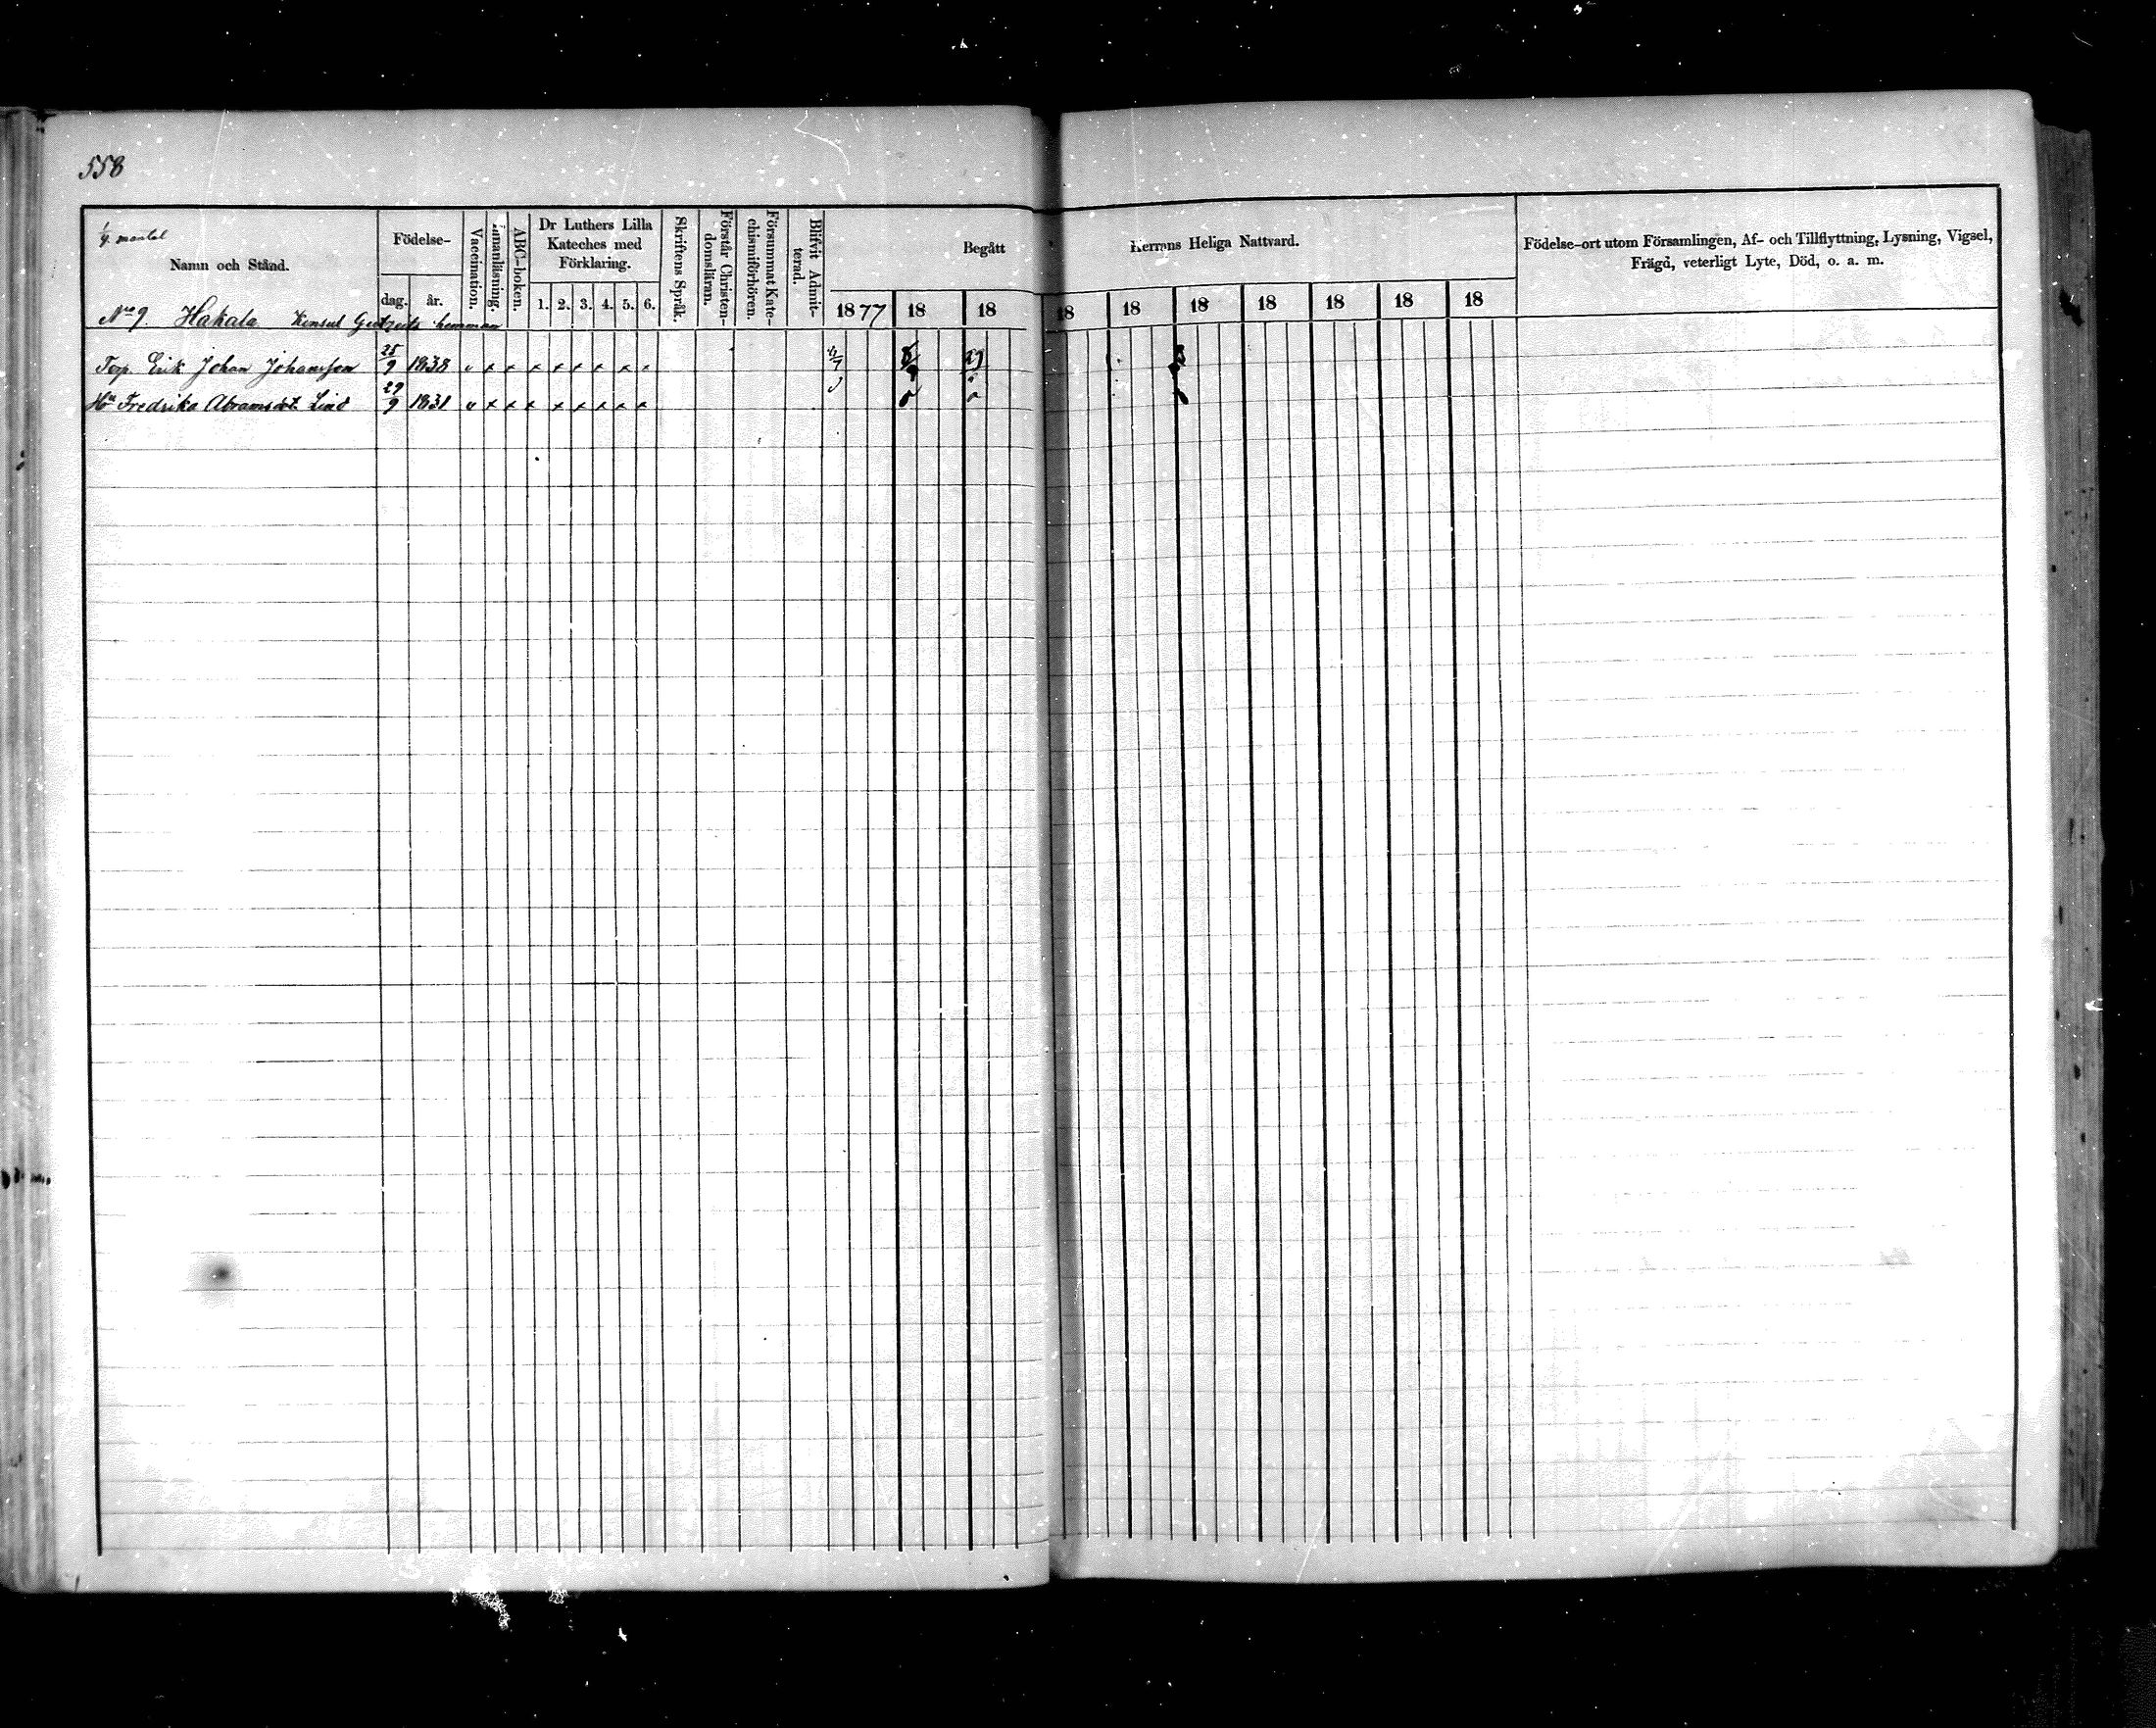 558
1/4 mantal
Namn och Stånd.
Födelse-
dag. år.
Vaccination.
Innanläsning.
ABC-boken.
Dr Luthers Lilla
Kateches med
Förklaring.
1. 2. 3. 4. 5. 6.
Skriftens Språk.
Förstår Christen-
domsläran.
Försummat Kate-
chismiförhören.
Blifvit Admit-
terad.
Begått Herrans Heliga Nattvard.
1877 18 18 18 18 18 18 18 18 18
Födelse-ort utom Församlingen, Af- och Tillflyttning, Lysning, Vigsel,
Frägd, veterligt Lyte, Död, o. a. m.
Nro 9. Hakala Konsul hemman
Torp. Erik Johan Johansson 25/9 1838
Hu Fredrika Abramsdot. Lind 29/9 1831